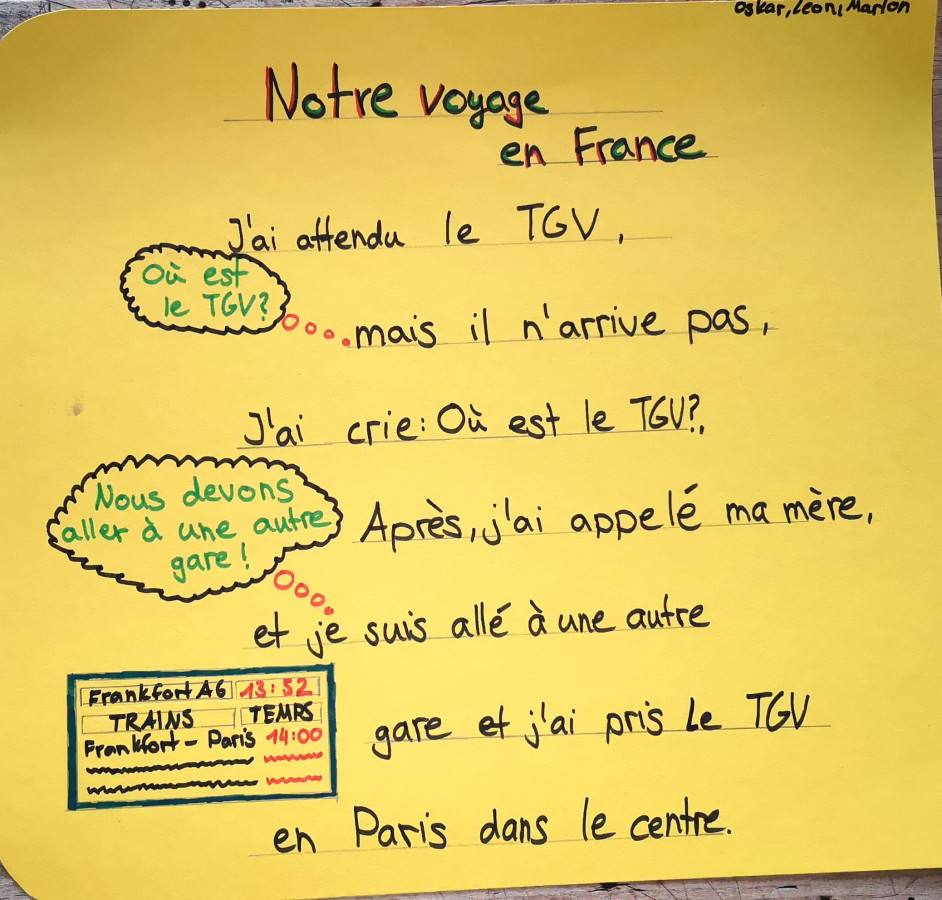 Oskar, Leon, Marlon
Notre voyage
en France
J'ai attendu le TGV,
Où est
le TGV?
mais il n'arrive pas,
J'ai crie: Où est le TGV?,
Nous devons
aller à une autre
gare!
Après, j'ai appelé ma mère,
et je suis allé à une autre
Frankfort A6 13:52
TRAINS TEMPS
Frankfort - Paris 14:00
gare et j'ai pris le TGV
en Paris dans le centre.